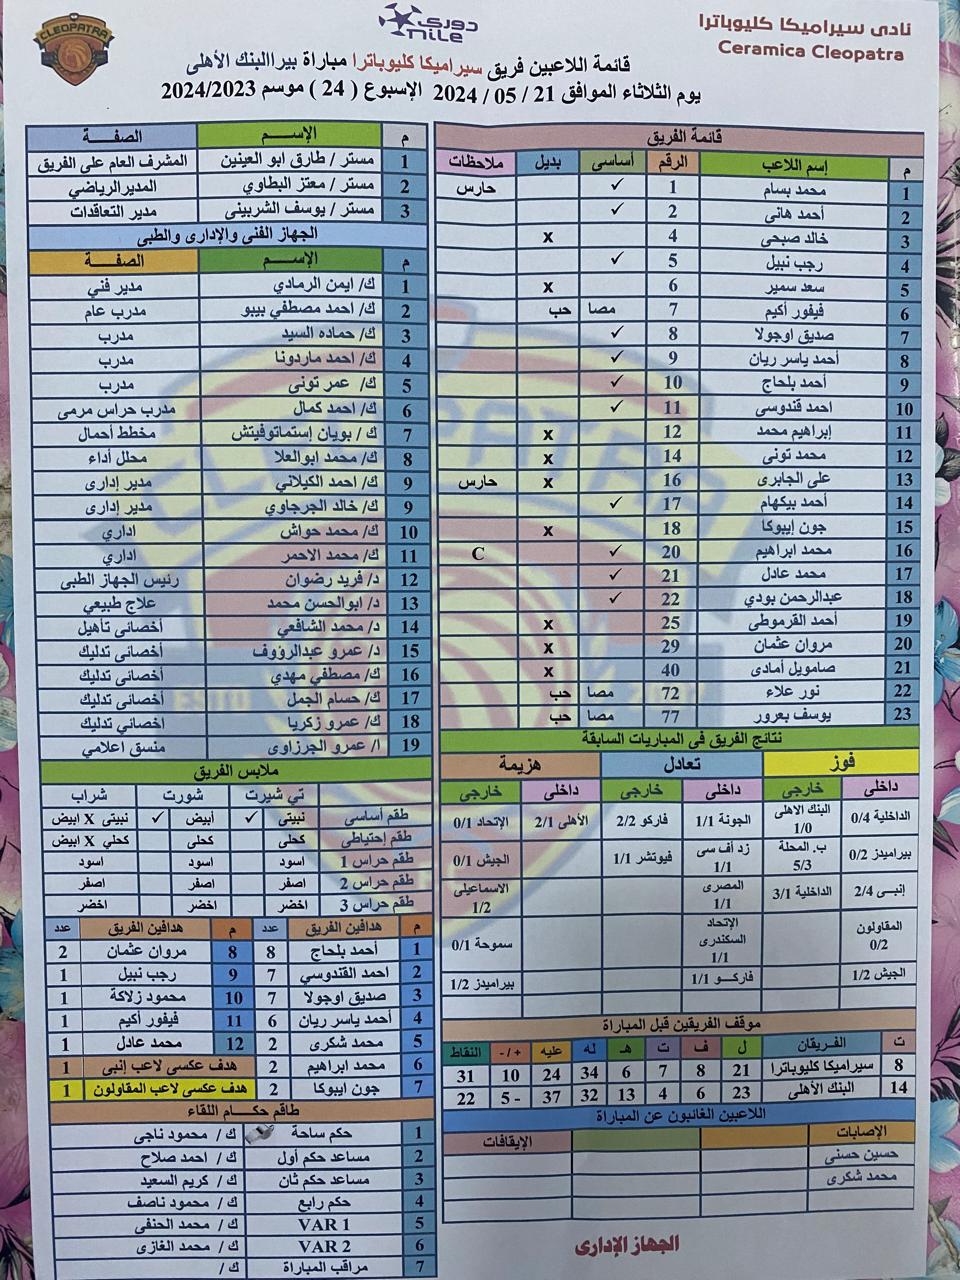 نادى سيراميكا كليوباترا
Ceramica Cleopatra
دورى
nile
CLEOPATRA
قائمة اللاعبين فريق سيراميكا كليوباترا مباراة بيراالبنك الأهلى
يوم الثلاثاء الموافق 21 / 05 / 2024 الإسبوع ( 24 ) موسم 2024/2023
قائمة الفريق
م إسم اللاعب الرقم أساسى بديل ملاحظات
1 محمد بسام 1 ✓ حارس
2 أحمد هانى 2 ✓
3 خالد صبحى 4 x
4 رجب نبيل 5 ✓
5 سعد سمير 6 x
6 فيفور أكيم 7 مصا حب
7 صديق اوجولا 8 ✓
8 أحمد ياسر ريان 9 ✓
9 أحمد بلحاج 10 ✓
10 احمد قندوسى 11 ✓
11 إبراهيم محمد 12 x
12 محمد تونى 14 x
13 على الجابرى 16 x حارس
14 أحمد بيكهام 17 ✓
15 جون إيبوكا 18 x
16 محمد ابراهيم 20 ✓ C
17 محمد عادل 21 ✓
18 عبدالرحمن بودي 22 ✓
19 أحمد القرموطى 25 x
20 مروان عثمان 29 x
21 صامويل أمادى 40 x
22 نور علاء 72 مصا حب
23 يوسف بعرور 77 مصا حب
نتائج الفريق فى المباريات السابقة
فوز تعادل هزيمة
داخلى خارجى داخلى خارجى داخلى خارجى
الداخلية 0/4 البنك الاهلى 1/0 الجونة 1/1 فاركو 2/2 الأهلى 2/1 الإتحاد 0/1
بيراميدز 0/2 ب. المحلة 5/3 زد أف سى 1/1 فيوتشر 1/1 الجيش 0/1
إنبـى 2/4 الداخلية 3/1 المصرى 1/1 الاسماعيلى 1/2
المقاولون 0/2 الإتحاد السكندرى 1/1 سموحة 0/1
الجيش 1/2 فاركــو 1/1 بيراميدز 1/2
موقف الفريقين قبل المباراة
ت الفريقان ل ف ت هـ له عليه + / - النقاط
8 سيراميكا كليوباترا 21 8 7 6 34 24 10 31
14 البنك الأهلى 23 6 4 13 32 37 - 5 22
اللاعبين الغائبون عن المباراة
الإصابات الإيقافات
حسين حسنى
محمد شكرى
الجهاز الإدارى
م الإســـم الصفـــة
1 مستر / طارق ابو العينين المشرف العام على الفريق
2 مستر / معتز البطاوي المديرالرياضي
3 مستر / يوسف الشربينى مدير التعاقدات
الجهاز الفنى والإدارى والطبى
م الإســـم الصفـــة
1 ك/ ايمن الرمادي مدير فني
2 ك/ احمد مصطفي بيبو مدرب عام
3 ك/ حماده السيد مدرب
4 ك/ احمد ماردونا مدرب
5 ك/ عمر تونى مدرب
6 ك/ احمد كمال مدرب حراس مرمى
7 ك / بويان إستماتوفيتش مخطط أحمال
8 ك/ محمد ابوالعلا محلل أداء
9 ك/ احمد الكيلاني مدير إدارى
9 ك/ خالد الجرجاوي مدير إدارى
10 ك/ محمد حواش اداري
11 ك/ محمد الاحمر اداري
12 د/ فريد رضوان رئيس الجهاز الطبى
13 د/ ابوالحسن محمد علاج طبيعي
14 د/ محمد الشافعي أخصائى تأهيل
15 د/ عمرو عبدالرؤوف أخصائى تدليك
16 ك/ مصطفي مهدي أخصائى تدليك
17 ك/ حسام الجمل أخصائى تدليك
18 ك/ عمرو زكريا أخصائى تدليك
19 ا/ عمرو الجرزاوى منسق اعلامي
ملابس الفريق
تي شيرت شورت شراب
طقم أساسى نبيتى ✓ أبيض ✓ نبيتى X ابيض
طقم إحتياطى كحلى كحلى كحلي X ابيض
طقم حراس 1 اسود اسود اسود
طقم حراس 2 اصفر اصفر اصفر
طقم حراس 3 اخضر اخضر اخضر
م هدافين الفريق عدد م هدافين الفريق عدد
1 أحمد بلحاج 8 8 مروان عثمان 2
2 احمد القندوسي 7 9 رجب نبيل 1
3 صديق اوجولا 7 10 محمود زلاكة 1
4 أحمد ياسر ريان 6 11 فيفور أكيم 1
5 محمد شكرى 2 12 محمد عادل 1
6 محمد ابراهيم 2 هدف عكسى لاعب إنبى 1
7 جون إيبوكا 2 هدف عكسى لاعب المقاولون 1
طاقم حكـــام اللقاء
1 حكم ساحة ك / محمود ناجى
2 مساعد حكم أول ك / احمد صلاح
3 مساعد حكم ثان ك / كريم السعيد
4 حكم رابع ك / محمود ناصف
5 VAR 1 ك / محمد الحنفى
6 VAR 2 ك / محمد الغازى
7 مراقب المباراة ك /